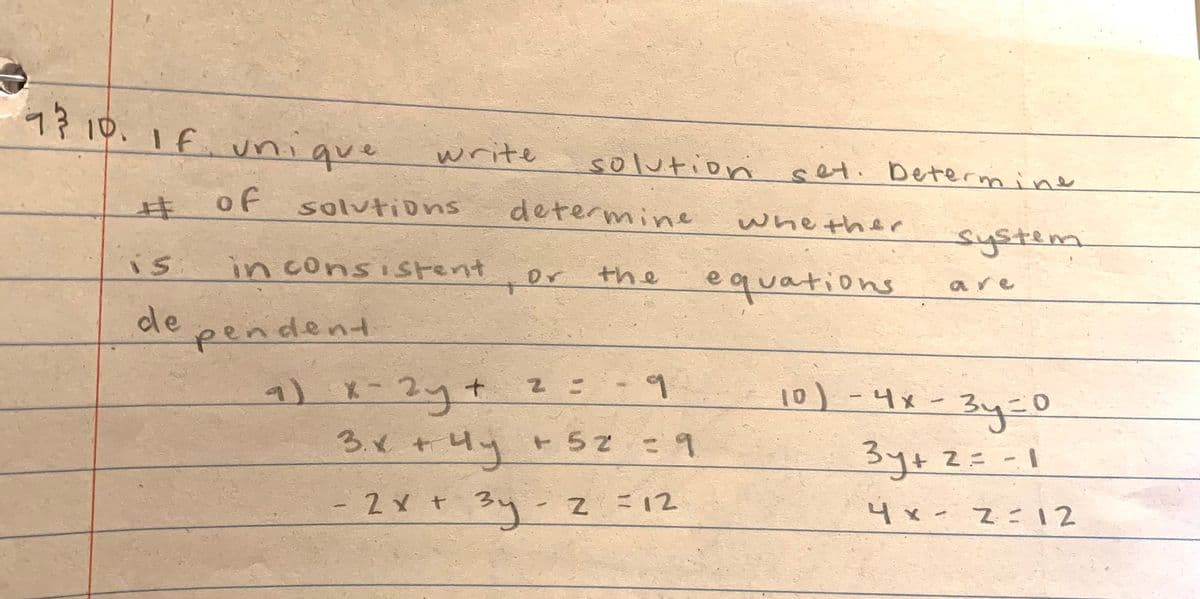 9 & 10. If unique write solution set. Determine
# of solutions determine whether system
is inconsistent, or the equations are
dependent
9) x - 2y + z = -9
3x + 4y + 5z = 9
- 2x + 3y - z = 12
10) -4x - 3y = 0
3y + z = -1
4x - z = 12